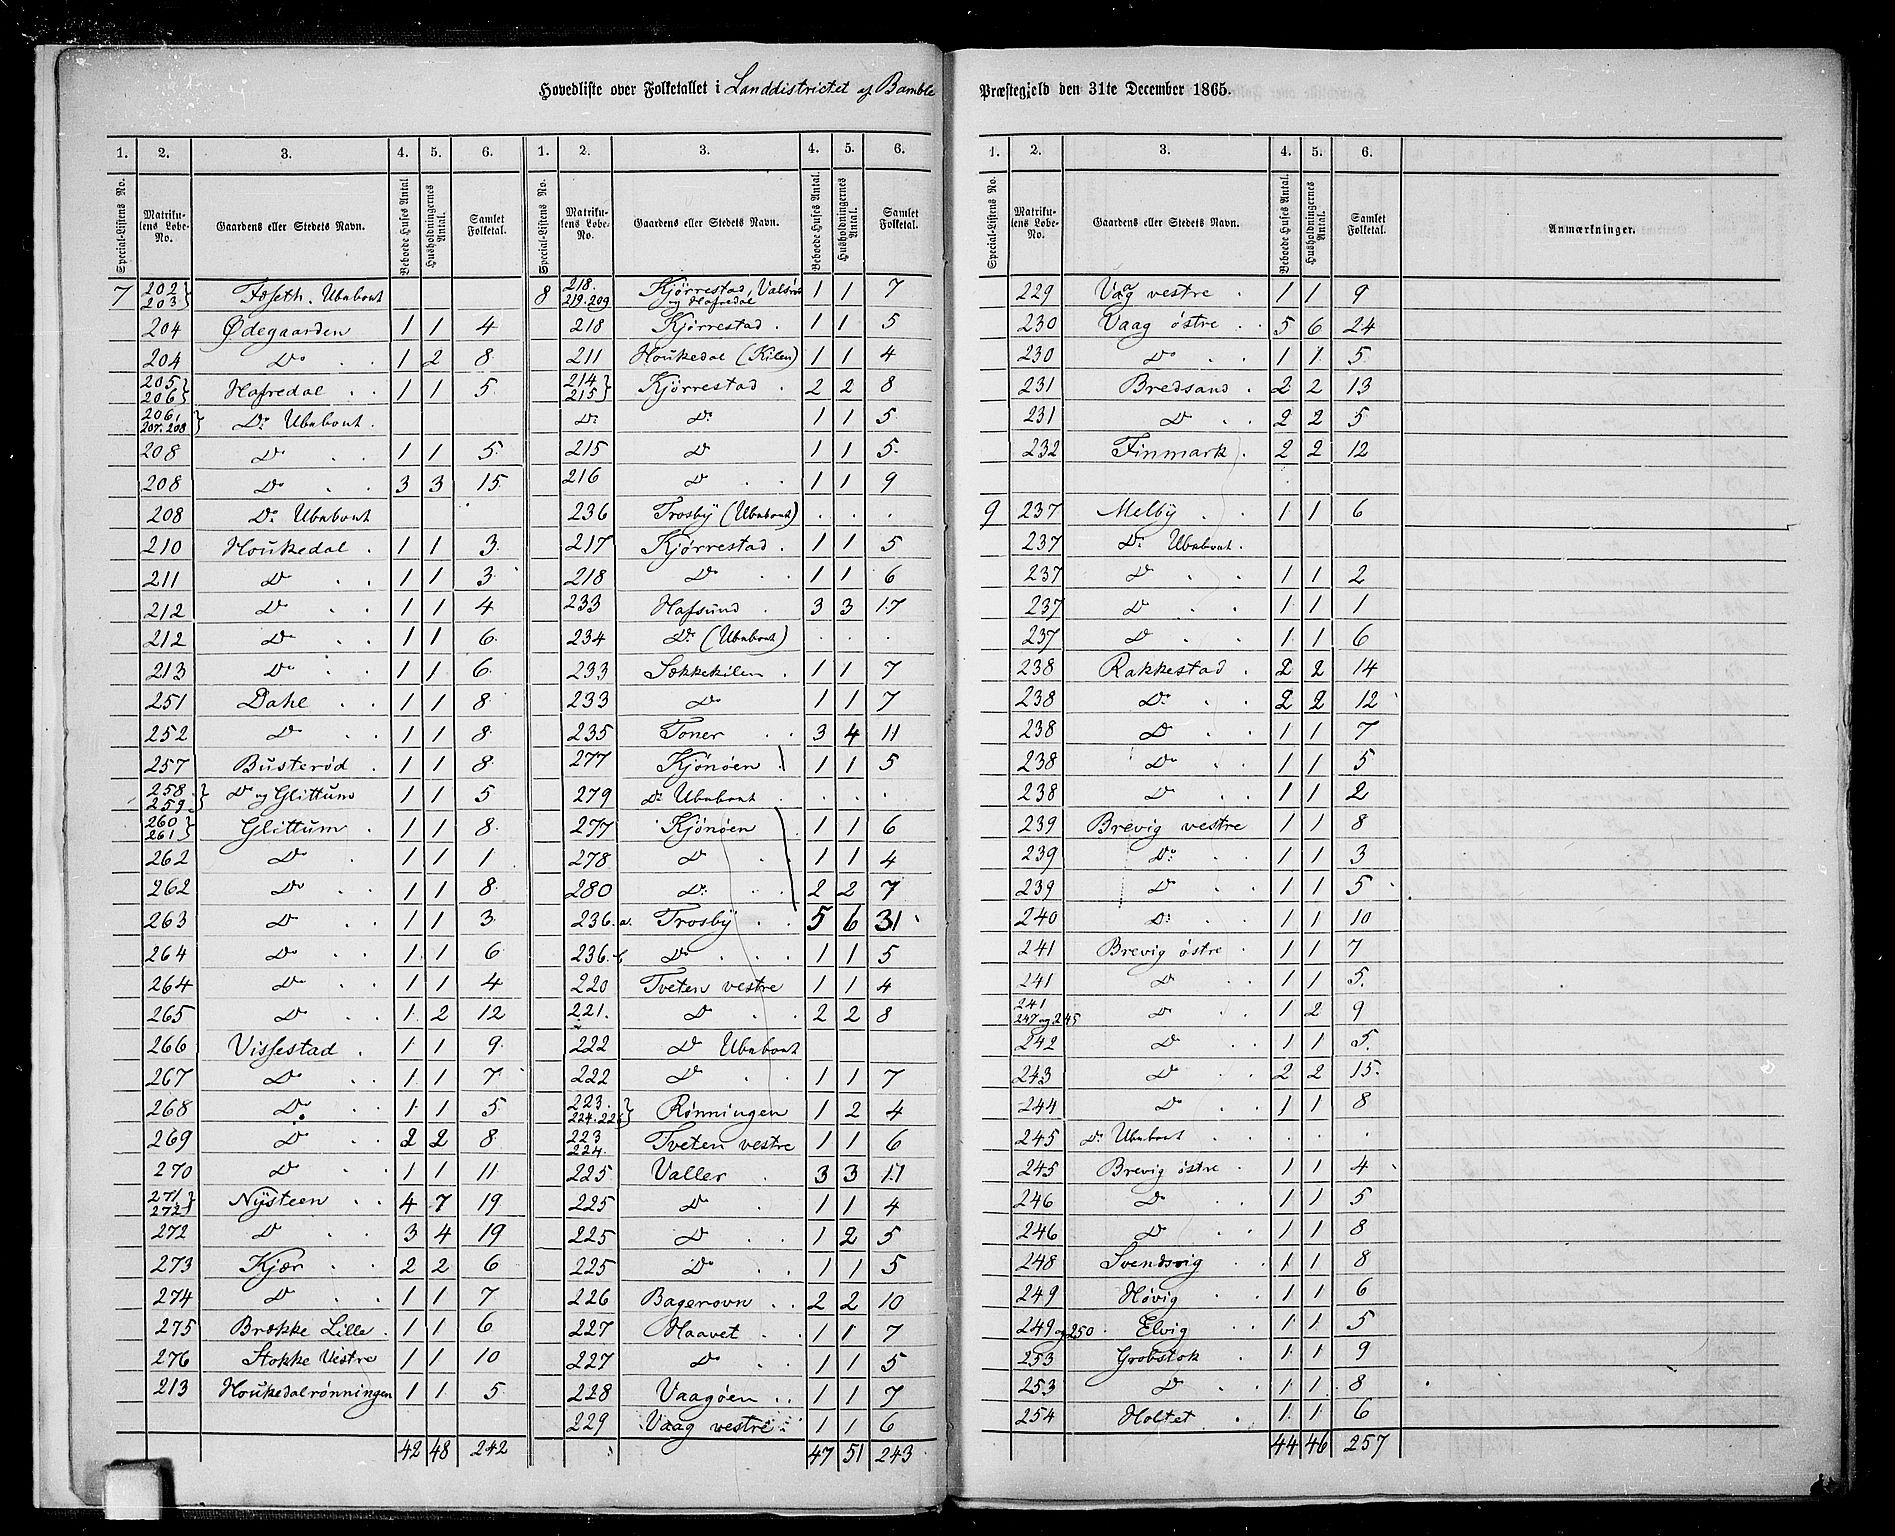 Hovedliste over Folketallet i Landdistrictet af Bamble Præstegjeld den 31te December 1865.
1. 2. 3. 4. 5. 6.
Special-Listens No. Matrikulens Løbe-No. Gaardens eller Stedets Navn. Beboede Huses Antal. Husholdningernes Antal. Samlet Folketal.
7 202 203 Foseth. Ubebont
204 Ødegaarden 1 1 4
204 Do 1 2 8
205 206 Hafredal 1 1 5
206, 207. 208 Do Ubebont
208 Do 1 1 5
208 Do 3 3 15
208 Do Ubebont
210 Houkedal 1 1 3
211 Do 1 1 3
212 Do 1 1 4
212 Do 1 1 6
213 Do 1 1 6
251 Dahl 1 1 8
252 Do 1 1 8
257 Busterød 1 1 8
258 259 Do og Glittum 1 1 5
260 261 Glittum 1 1 8
262 Do 1 1 1
262 Do 1 1 8
263 Do 1 1 3
264 Do 1 1 6
264 Do 1 1 4
265 Do 1 2 12
266 Vissestad 1 1 9
267 Do 1 1 7
268 Do 1 1 5
269 Do 2 2 8
270 Do 1 1 11
271 272 Nÿsteen 4 7 19
272 Do 3 4 19
273 Kjær 2 2 6
274 Do 1 1 7
275 Brække Lille 1 1 6
276 Stokke Vestre 1 1 10
213 Houkedalrønningen 1 1 5
42 48 242
1. 2. 3. 4. 5. 6.
Special-Listens No. Matrikulens Løbe-No. Gaardens eller Stedets Navn. Beboede Huses Antal. Husholdningernes Antal. Samlet Folketal.
8 218. 219.209 Kjørrestad, Valsrø og Hafredal 1 1 7
218 Kjørrestad 1 1 5
211 Houkedal (Kilen) 1 1 4
214 215 Kjørrestad 2 2 8
Do Do 1 1 5
215 Do 1 1 5
216 Do 1 1 9
236 Trosbÿ (Ubebont)
217 Kjørrestad 1 1 5
218 Do 1 1 6
233 Hafsund 3 3 17
234 Do (Ubebont)
233 Sækkekilen 1 1 7
233 Do 1 1 7
235 Toner 3 4 11
277 Kjønøen 1 1 5
279 Do Ubebont
277 Kjønøen 1 1 6
278 Do 1 1 4
280 Do 2 2 7
236.a. Trosbÿ 5 6 31
236.b Do 1 1 5
220 Tveten vestre 1 1 4
221. Do 2 2 8
222 Do Ubebont
222 Do 1 1 7
223. 224.226 Rønningen 1 2 4
223 224. Tveten vestre 1 1 6
225 Valler 3 3 11
225 Do 1 1 4
225 Do 1 2 5
225 Do 1 1 5
226 Bagerovn 2 2 10
227 Haavet 1 1 7
227 Do 1 1 5
228 Vaagøen 1 1 7
229 Vaag vestre 1 1 6
47 51 243
1. 2. 3. 4. 5. 6.
Special-Listens No. Matrikulens Løbe-No. Gaardens eller Stedets Navn. Beboede Huses Antal. Husholdningernes Antal. Samlet Folketal. Anmærkninger.
229 Vaag vestre 1 1 9
230 Vaag østre 5 6 24
230 Do 1 1 5
231 Bredsand 2 2 13
231 Do 2 2 5
232 Finmark 2 2 12
9 237 Melbÿ 1 1 6
237 Do Ubebont
237 Do 1 1 2
237 Do 1 1 1
237 Do 1 1 6
238 Rakkestad 2 2 14
238 Do 2 2 12
238 Do 1 1 7
238 Do 1 1 5
238 Do 1 1 2
239 Brevig vestre 1 1 8
239 Do 1 1 3
239 Do 1 1 5
240 Do 1 1 10
241 Brevig østre 1 1 7
241 Do 1 1 5
241 247 og 245 Do 1 2 9
242 Do 1 1 5
243 Do 2 2 15
244 Do 1 1 8
245 Do Ubebont
245 Brevig østre 1 1 4
246 Do 1 1 5
246 Do 1 1 8
248 Svendsvig 1 1 8
249 Høvig 1 1 6
249 og 250 Elvig 1 1 5
253 Grobstok 1 1 9
253 Do 1 1 8
254 Holtet 1 1 6
44 46 257